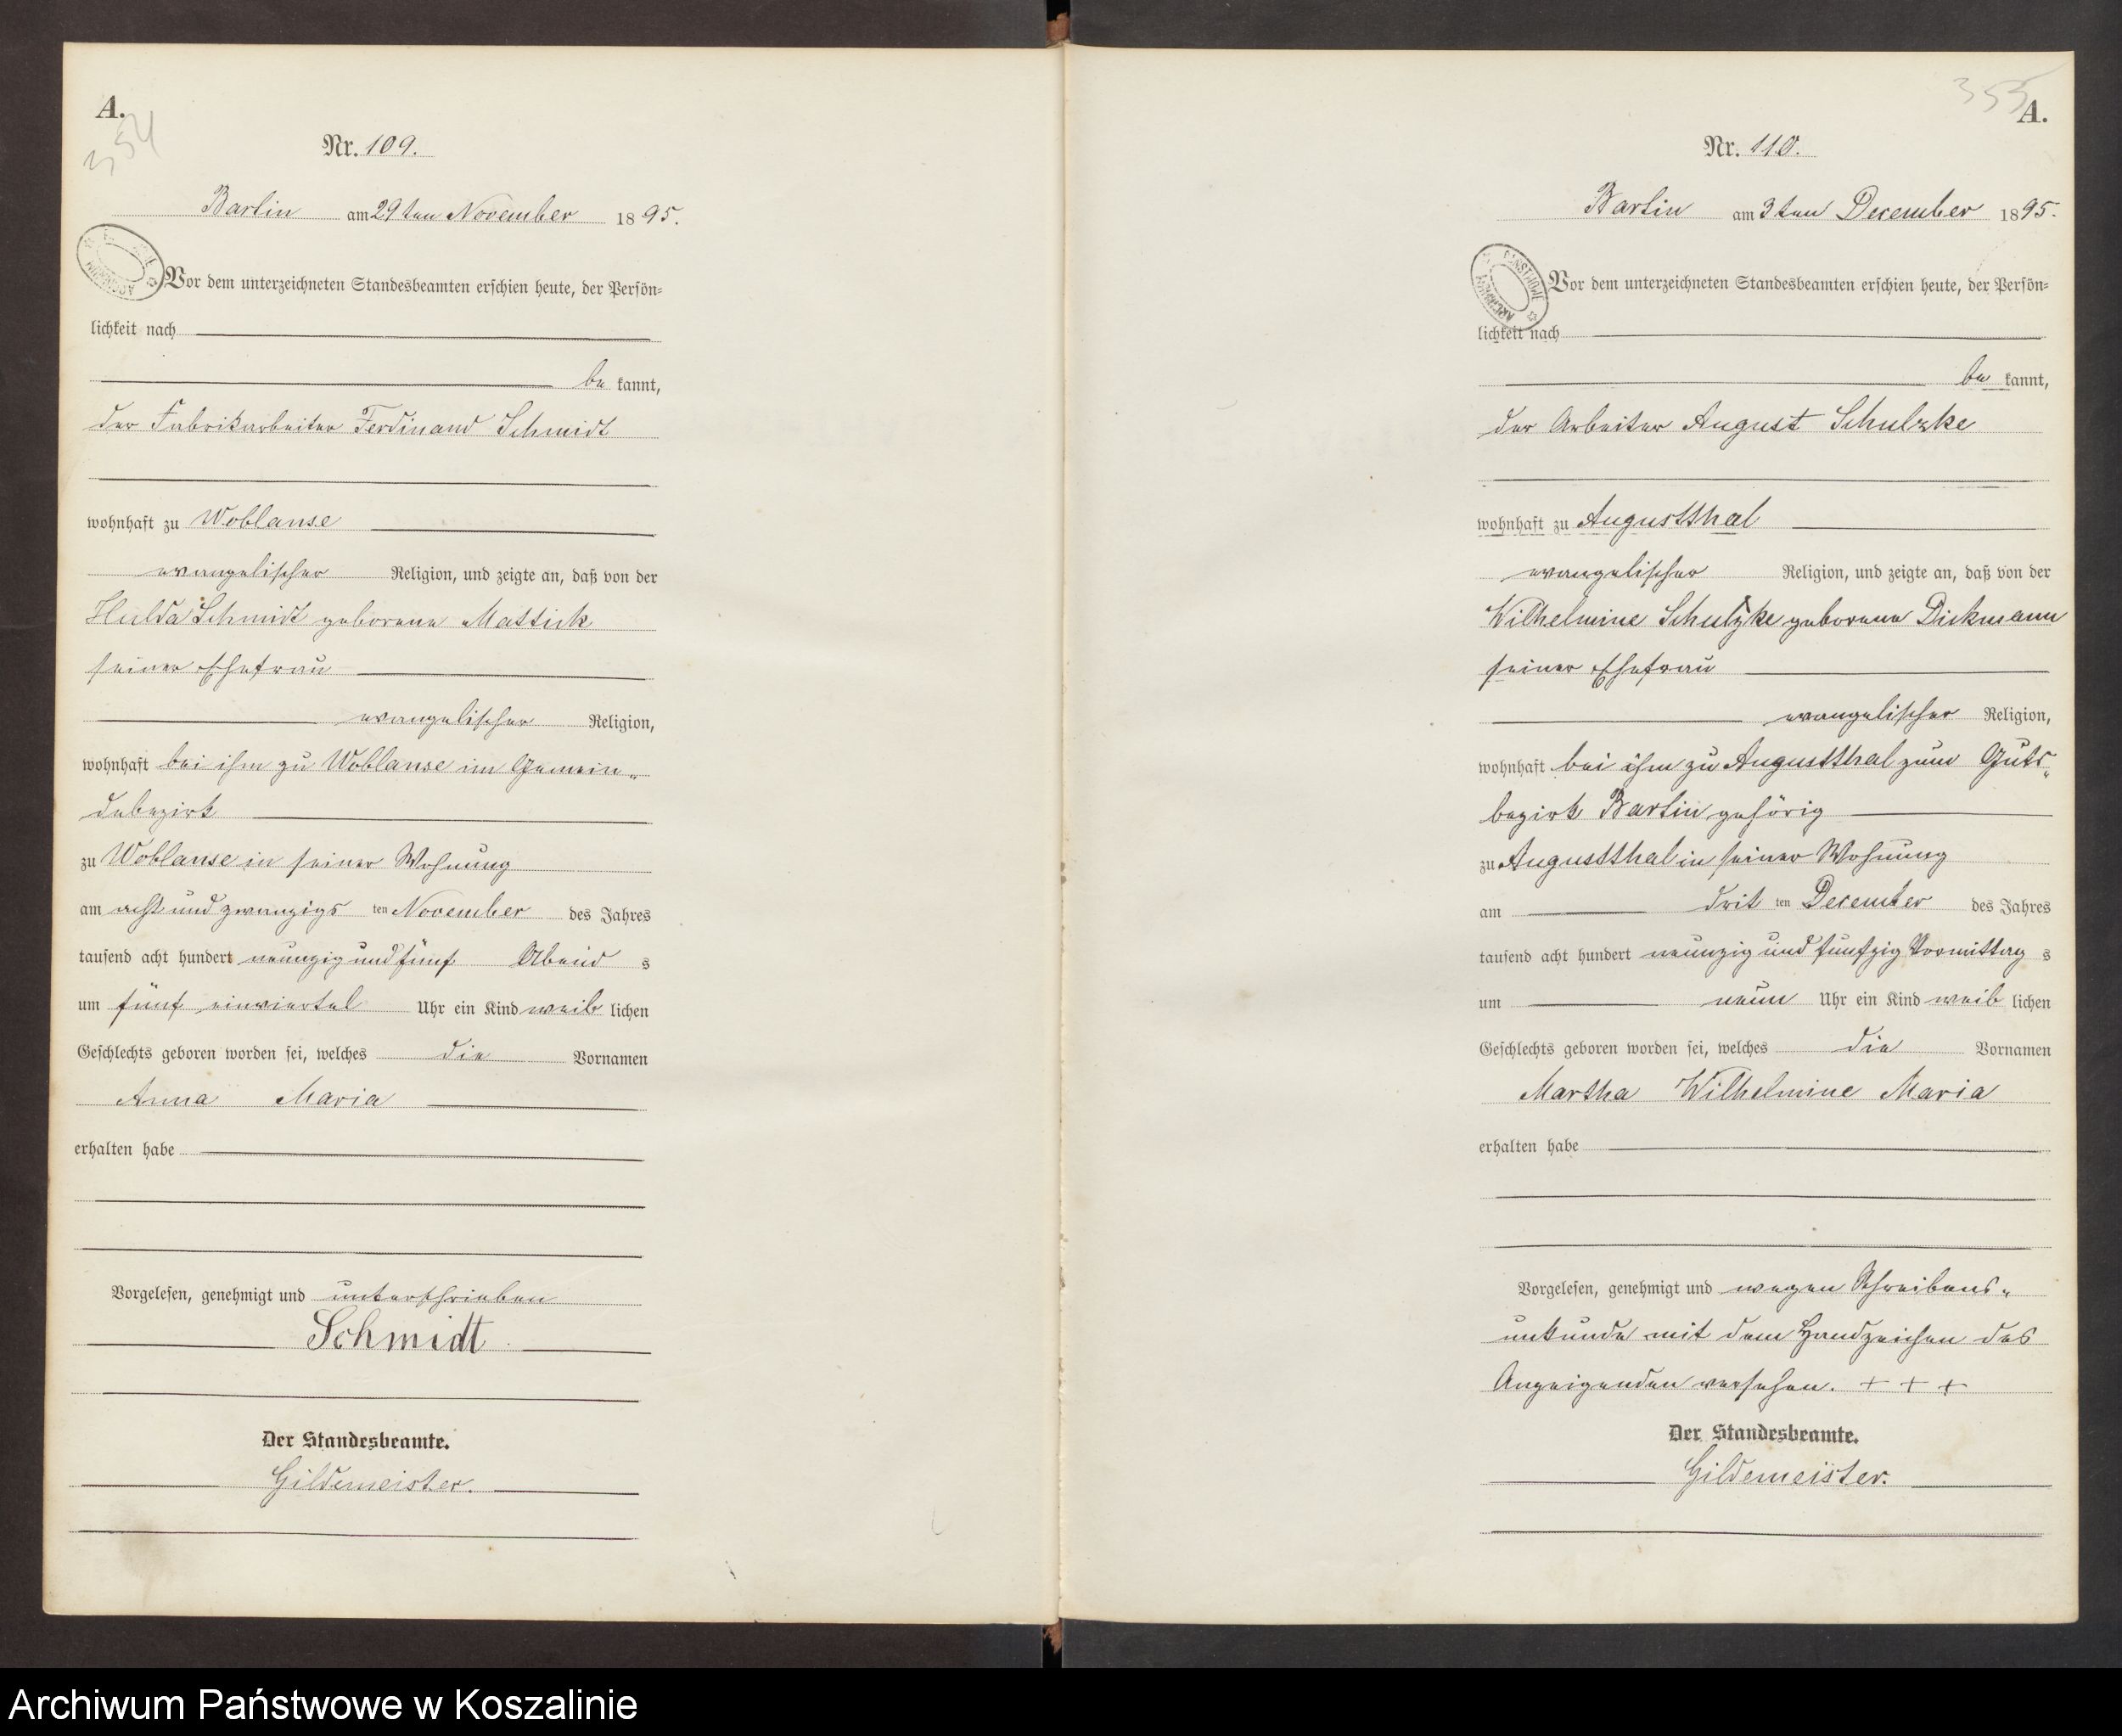 A.
354
Nr. 109.
Bartin am 29ten November 1895.
Vor dem unterzeichneten Standesbeamten erschien heute, der Persön-
lichkeit nach
be kannt,
der Fabrikarbeiter Ferdinand Schmidt
wohnhaft zu Woblanse
evangelischer Religion, und zeigte an, daß von der
Hulda Schmidt geborene Mattick
seiner Ehefrau
evangelischer Religion,
wohnhaft bei ihm zu Woblanse im Gemein-
debezirk
zu Woblanse in seiner Wohnung
am acht und zwanzigs ten November des Jahres
tausend acht hundert neunzig und fünf Abend s
um fünf einviertel Uhr ein Kind weib lichen
Geschlechts geboren worden sei, welches die Vornamen
Anna Maria
erhalten habe
Vorgelesen, genehmigt und unterschrieben
Schmidt
Der Standesbeamte.
Gildemeister.
355
A.
Nr. 110.
Bartin am 3ten December 1895.
Vor dem unterzeichneten Standesbeamten erschien heute, der Persön-
lichkeit nach
be kannt,
der Arbeiter August Schulzke
wohnhaft zu Augustthal
evangelischer Religion, und zeigte an, daß von der
Wilhelmine Schulzke geborene Dickmann
seiner Ehefrau
evangelischer Religion,
wohnhaft bei ihm zu Augustthal zum Guts-
bezirk Bartin gehörig
zu Augustthal in seiner Wohnung
am drit ten December des Jahres
tausend acht hundert neunzig und funfzig Vormittag s
um neun Uhr ein Kind weib lichen
Geschlechts geboren worden sei, welches die Vornamen
Martha Wilhelmine Maria
erhalten habe
Vorgelesen, genehmigt und wegen Schreibens-
unkunde mit dem Handzeichen des
Anzeigenden versehen. + + +
Der Standesbeamte.
Gildemeister.
Archiwum Państwowe w Koszalinie